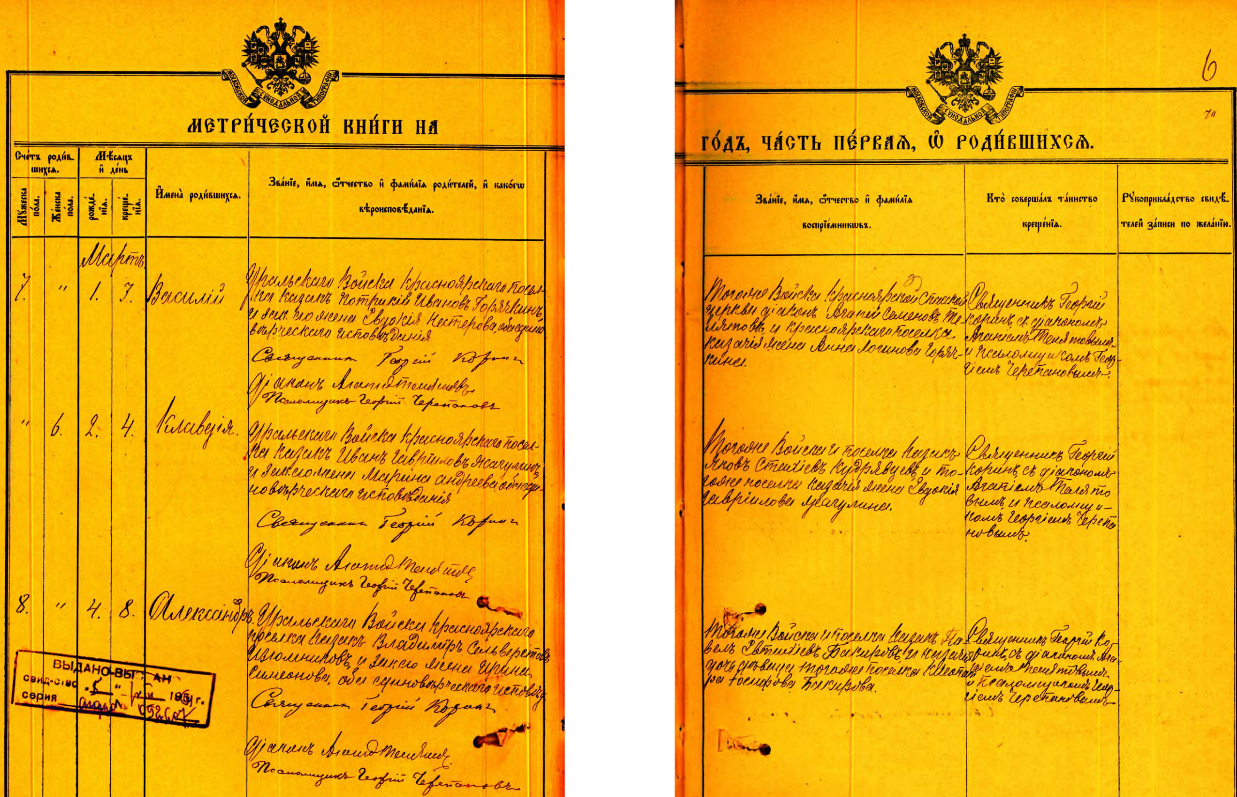 МЕТРИ́ЧЕСКОЙ КНИ́ГИ НА
Сче́тъ роди́в-
шихся.
Му́жеска по́ла.
Же́нска по́ла.
Мѣ́сяцъ
и҆ де́нь
рожде́-
нїя.
креще́-
нїя.
И҆мена̀ роди́вшихся.
Зва́нїе, и҆́мя, ѻ҆́тчество и҆ фами́лїя роди́телей, и҆ како́гѡ
вѣроисповѣ́данїя.
Мартъ
7. " 1. 3. Василій
Уральскаго Войска Красноярскаго посел-
ка казакъ Патрикій Ивановъ Горячкинъ
и зак. его жена Евдокія Нестерова, оба едино
вѣрческаго исповѣданія
Священникъ Георгій Коринъ
Діаконъ
Псаломщикъ Георгій Черепановъ
" 6. 2. 4. Клавдія.
Уральскаго Войска Красноярскаго посел-
ка казакъ Иванъ Гавриловъ
и жена Марина Андреева оба еди
новѣрческаго исповѣданія
Священникъ Георгій Коринъ
Діаконъ
Псаломщикъ Георгій Черепановъ
8. " 4. 8. Александръ
Уральскаго Войска Красноярскаго
поселка казакъ Владиміръ Сельверстовъ
Изюмниковъ, и закон. жена Ирина
Симеонова, оба единовѣрческаго исповѣд
Священникъ Георгій Коринъ
Діаконъ
Псаломщикъ Георгій Черепановъ
ВЫДАНО
свид-ство
серия
6
ГО́ДЪ, ЧА́СТЬ ПЕ́РВАЯ, Ѽ РОДИ́ВШИХСЯ.
Зва́нїе, и҆́мя, ѻ҆́тчество и҆ фами́лїя
воспрїе́мниковъ.
Кто̀ соверша́лъ та́инство
креще́нїя.
Рꙋкоприкла́дство свидѣ́-
телей за́писи по жела́нїю.
Тогоже Войска Красноярской Спаской
церкви діаконъ Агапій Семеновъ Те
лятовъ, и Красноярскаго поселка
казачія жена Анна Логинова Горяч-
кина.
Священникъ Георгій
Коринъ съ діакономъ
Агапіемъ Телятовымъ
и псаломщикомъ Геор-
гіемъ Черепановымъ.
Тогоже Войска и поселка казакъ
Яковъ Кудрявцевъ и то-
гоже поселка казачія жена Евдокія
Гаврилова
Священникъ Георгій
Коринъ съ діакономъ
Агапіемъ Телято
вымъ и псаломщи-
комъ Георгіемъ Черепа
новымъ.
Тогоже Войска и поселка казакъ Па
велъ Бакировъ, и
дочь дѣвица тогоже поселка Клеопат
ра Бакирова.
Священникъ Георгій Ко-
ринъ, съ діакономъ Ага-
піемъ Телятовымъ
и псаломщикомъ Геор-
гіемъ Черепановымъ